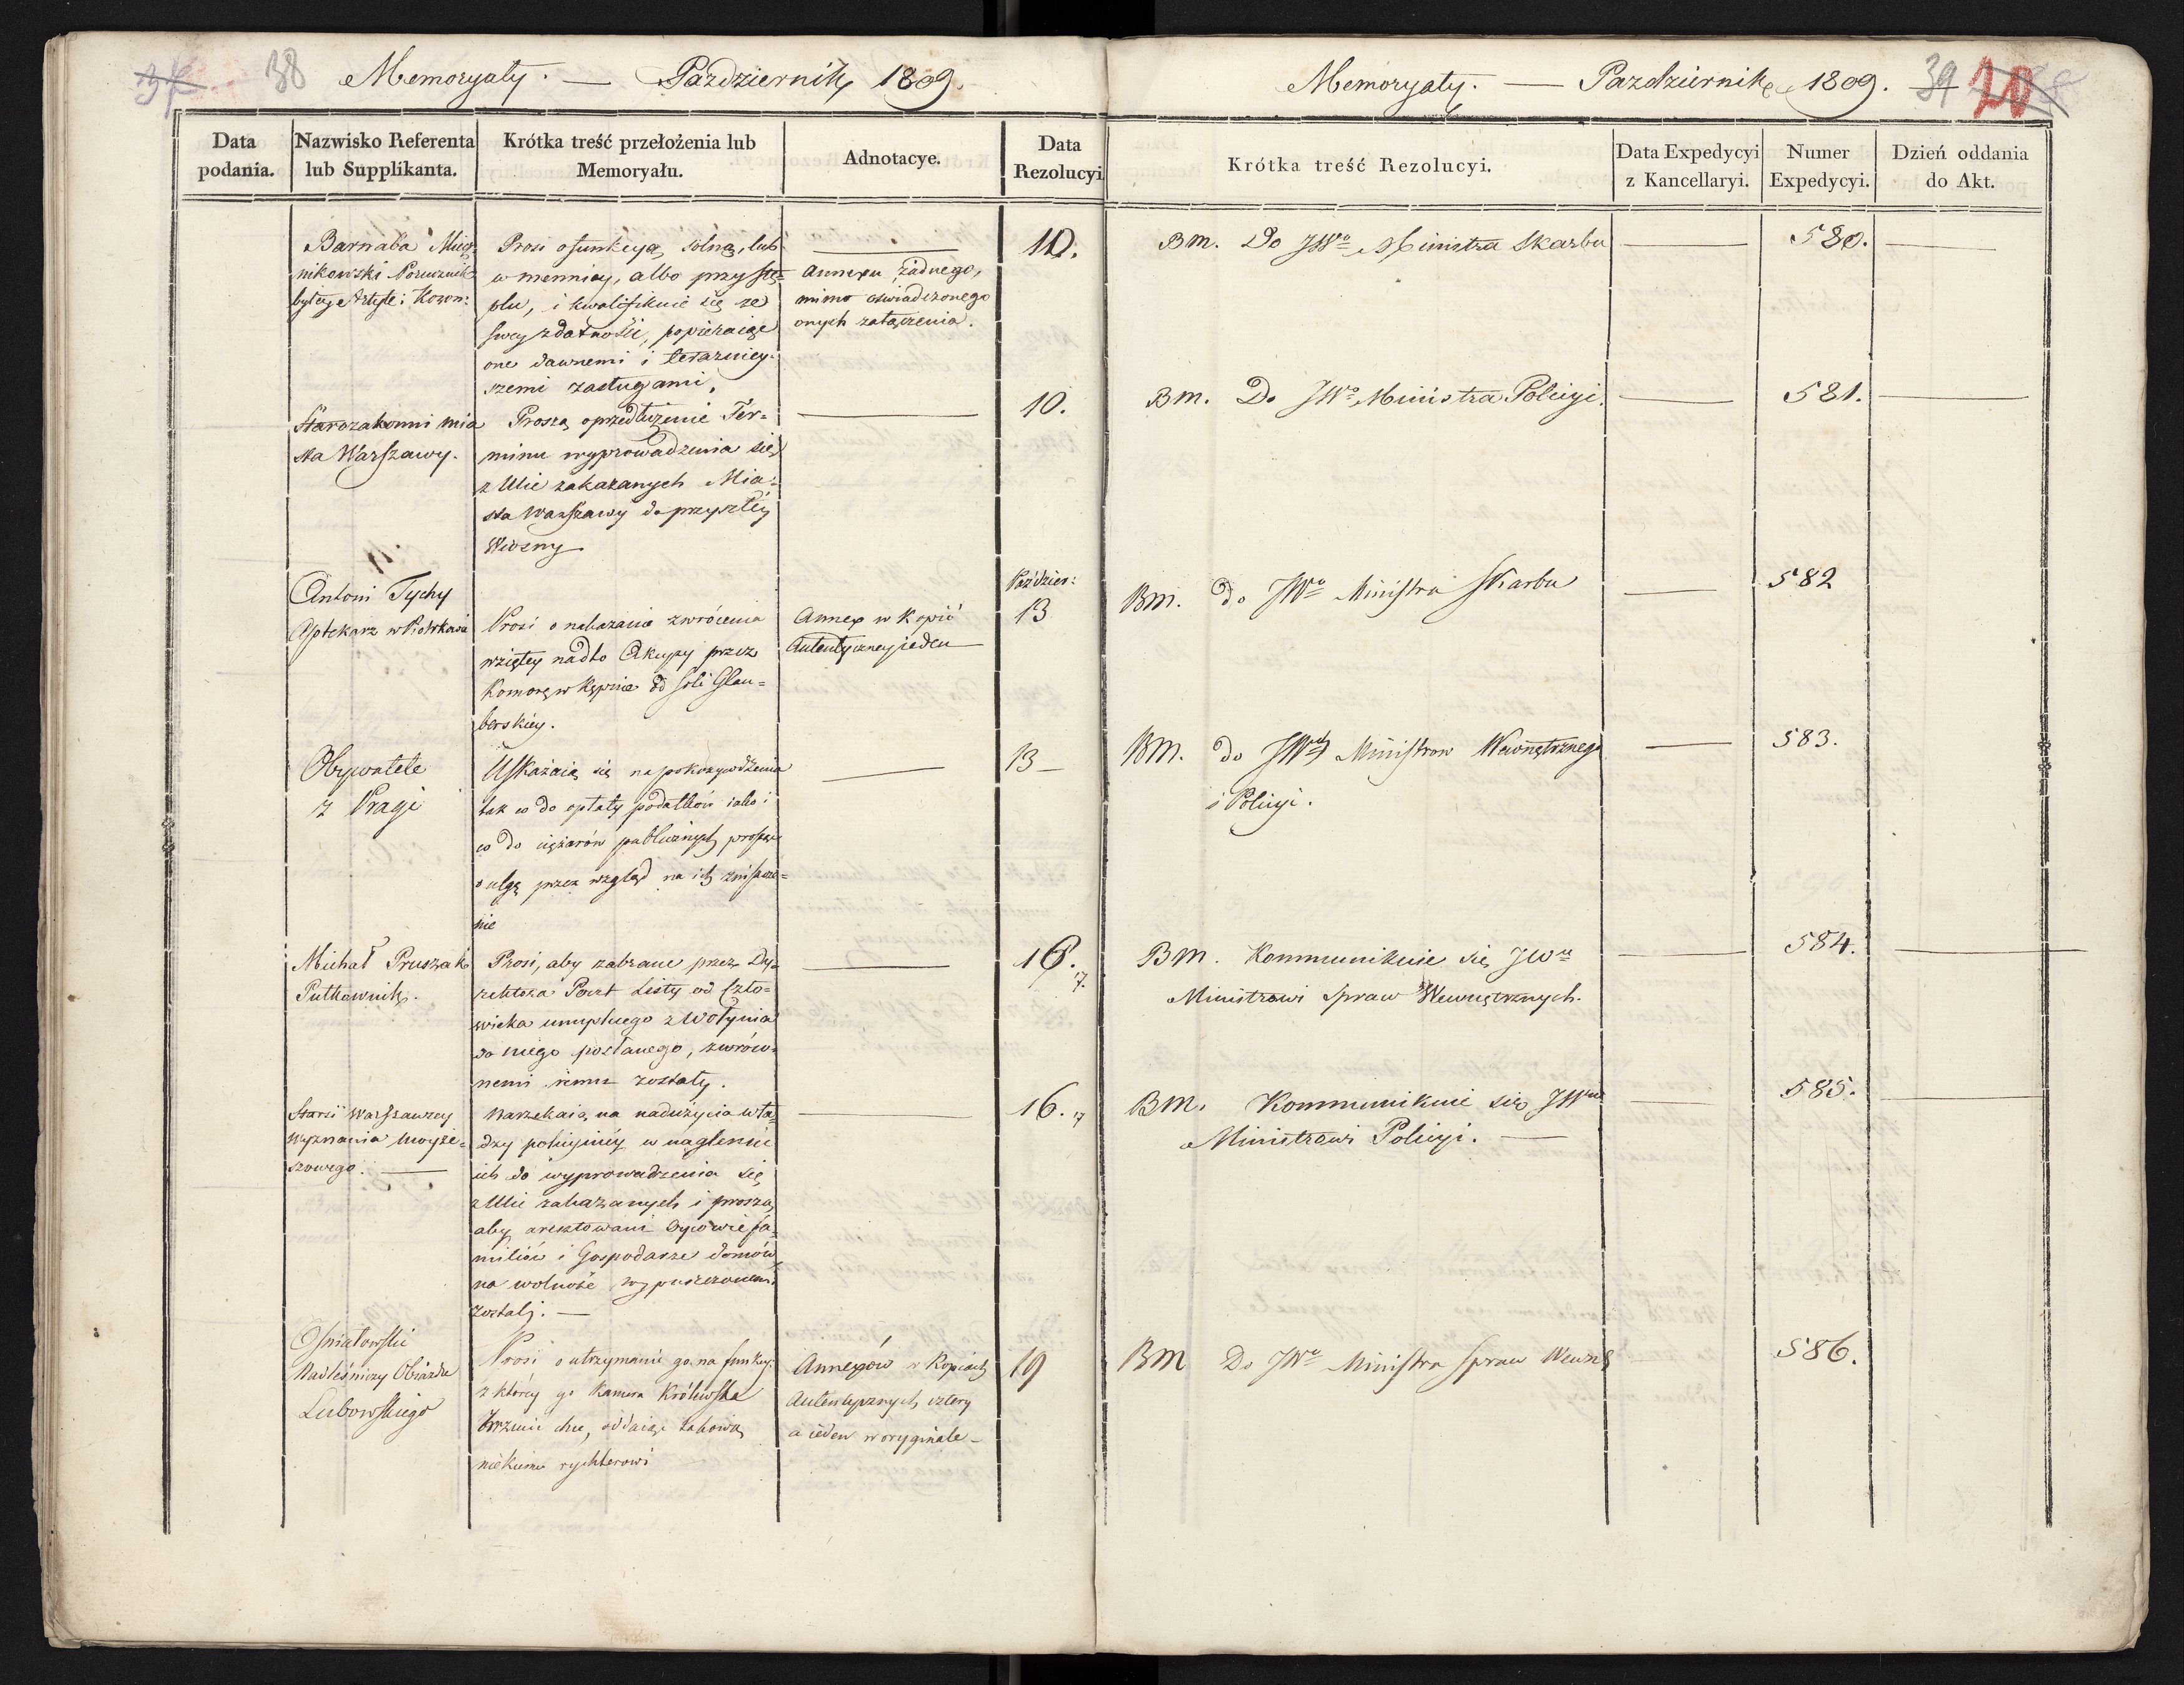 38 Memoryały. — Październik 1809.
Data podania.
Nazwisko Referenta lub Supplikanta.
Krótka treść przełożenia lub Memoryału.
Adnotacye.
Data Rezolucyi
Barnaba
nikowski Porucznik
byłey Artyle: Koron:
Prosi o funkcyą solną, lub
w mennicy, albo przy stę=
plu, i kwalifikuie się ze
swey zdatności, popieraiąc
one dawnemi i teraźniey=
szemi zasługami.
Annexu żadnego,
mimo oświadczonego
onych załączenia.
10.
Starozakonni mia
sta Warszawy.
Proszą o przedłużenie Ter=
minu wyprowadzenia się
z Ulic zakazanych Mia=
sta Warszawy do przyszłéy
Wiosny
10.
Antoni Tychy
Aptekarz w Piotrkowie
Prosi o nakazanie zwrócenia
wziętey nadto Akcyzy przez
Komorę w Kępnie od soli Glau=
berskiey.
Annex w Kopii
Autentyczney ieden
Paździer:
13
Obywatele
z Pragi
Uskarżaią się na pokrzywdzenia
tak co do opłaty podatków iako i
co do ciężarów publicznych proszą
o ulgę przez wzgląd na ich zniszcze=
nie
13 —
Michał Pruszak
Pułkownik.
Prosi, aby zabrane przez Dy=
rektora Poczt Listy od Czło=
wieka umyślnego z Wołynia
do niego posłanego, zwróco=
nemi iemu zostały.
16. 17.
Starsi Warszawscy
Wyznania Moyże=
szowego. —
Narzekaią na nadużycia wła=
dzy policyinéy w nagleniu
ich do wyprowadzenia się
z Ulic zakazanych i proszą
aby aresztowani Oycowie fa=
miliów i Gospodarze domów
na wolność wypuszczonemi
zostali. —
16. 17
Nadleśniczy Obiazdu
Lubowskiego
Prosi o utrzymanie go na funkcyi
z któréy go Kamera Królewska
zrzucić chce, oddaiąc takową
nieiakiemu rychterowi
Annexów w Kopiach
Autentycznych cztery
a ieden w oryginale —
19
Memoryały. — Październik 1809. 39 20
Krótka treść Rezolucyi.
Data Expedycyi z Kancellaryi.
Numer Expedycyi.
Dzień oddania do Akt.
BM. Do JWo Ministra Skarbu — 580. —
BM. Do JWo Ministra Policyi. — 581. —
BM. do JWo Ministra Skarbu — 582
BM. do Ministrow Wewnętrznego — 583.
i Policyi.
BM. Kommunikuie się JWu — 584. —
Ministrowi Spraw Wewnętrznych.
BM. Kommunikuie się JWmu — 585. —
Ministrowi Policyi. —
BM Do JWo Ministra Spraw Wewnę — 586.